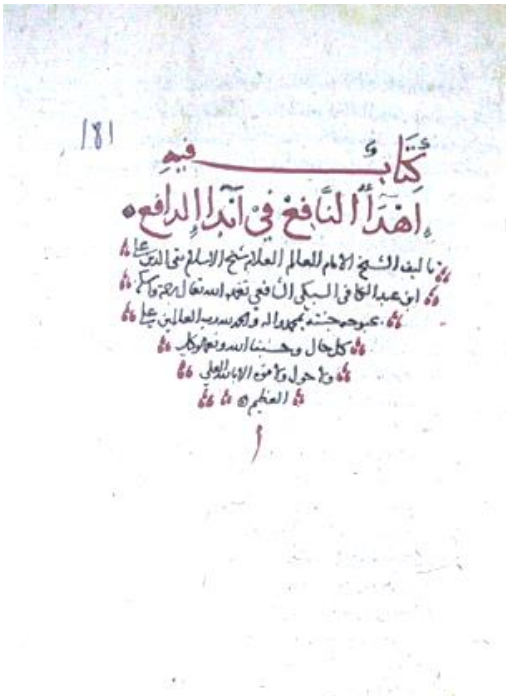 ١٨١
كتاب فيه
اهدأ النافع في آندا الدافع
تاليف الشيخ الامام العالم العلامة شيخ الاسلام تقي الدين علي
ابن عبد الكافي السبكي الشافعي تغمده الله تعالى برحمته واسكنه
بحبوحة جنته بمحمد واله والحمد لله رب العالمين على
كل حال وحسبنا الله ونعم الوكيل
ولا حول ولا قوة الا بالله العلي
العظيم